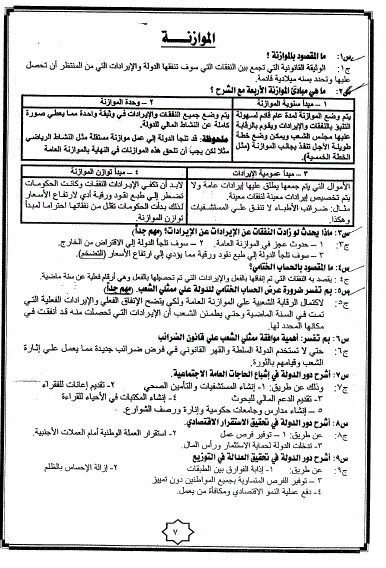 الموازنــة
س١: ما المقصود بالموازنة ؟
ج١: الوثيقة القانونية التي تجمع بين النفقات التي سوف تنفقها الدولة والإيرادات التي من المنتظر أن تحصل
عليها وتحدد بسنه ميلادية قادمة.
س٢: ما هي مبادئ الموازنة الأربعة مع الشرح ؟
١ – مبدأ سنوية الموازنة
يتم وضع الموازنة لمدة عام قادم لسهولة
التنبؤ بالنفقات والإيرادات ويقوم بالرقابة
عليها مجلس الشعب ويمكن وضع خطة
طويلة الأجل تنفذ بجانب الموازنة (مثل
الخطة الخمسية).
٢ – وحدة الموازنة
يتم وضع جميع النفقات والإيرادات في وثيقة واحدة مما يعطي صورة
كاملة عن النشاط المالي للدولة.
ملحوظة: قد تلجأ الدولة إلي عمل موازنة مستقلة مثل النشاط الرياضي
مثلا لكن يجب أن تلحق هذه الموازنات في النهاية بالموازنة العامة
٣ – مبدأ عمومية الإيرادات
الأموال التي يتم جمعها يطلق عليها إيرادات عامة ولا
يتم تخصيص إيرادات معينة لنفقات معينة.
مثال: ضرائب الأطباء لا تنفق على المستشفيات
وهكذا.
٤ – مبدأ توازن الموازنة
لابد أن تكفي الإيرادات النفقات وكانت الحكومات
تضطر إلي طبع نقود ورقية أدي لارتفاع الأسعار
لذلك بدأت الحكومات تقلل من نفقاتها احتراما لمبدأ
توازن الموازنة.
س٣: ماذا يحدث لو زادت النفقات عن الإيرادات عن الإيرادات؟ (مهم جداً)
ج٣: ١ – حدوث عجز في الموازنة العامة. ٢ – سوف تلجأ الدولة إلي الاقتراض من الخارج.
٣ – سوف تلجأ الدولة إلي طبع نقود ورقية مما يؤدي إلي ارتفاع الأسعار (التضخم).
س٤: ما المقصود بالحساب الختامي؟
ج٤: يقصد به النفقات التي تم إنفاقها بالفعل والإيرادات التي تم تحصيلها بالفعل وهي أرقام فعلية عن سنة ماضية.
س٥: بم تفسر ضرورة عرض الحساب الختامي للدولة علي ممثلي الشعب. (مهم جداً)
ج٥: لاكتمال الرقابة الشعبية علي الموازنة العامة ولكي يتضح الإنفاق الفعلي والإيرادات الفعلية التي
تمت في السنة الماضية وحتي يطمئن الشعب أن الإيرادات التي تحصلت منه قد أنفقت في
مكانها المحدد لها.
س٦: بم تفسر: أهمية موافقة ممثلي الشعب علي قانون الضرائب
ج٦: حتي لا تستخدم الدولة السلطة والقهر القانوني في فرض ضرائب جديدة مما يعمل علي إثارة
الشعب وقيامهم بالثورة.
س٧: أشرح دور الدولة في إشباع الحاجات العامة الاجتماعية.
ج٧: وذلك عن طريق: ١- إنشاء المستشفيات والتأمين الصحي ٢- تقديم إعانات للفقراء
٣- تقديم الدعم المالي للبحوث ٤- إنشاء المكتبات في الأحياء للقراءة
٥ – إنشاء مدارس وجامعات حكومية وإنارة ورصف الشوارع.
س٨: أشرح دور الدولة في تحقيق الاستقرار الاقتصادي.
ج٨: عن طريق: ١ – توفير فرص عمل ٢- استقرار العملة الوطنية أمام العملات الأجنبية.
٣- تدخلت الدولة لحماية الاستثمار ورأس المال.
س٩: أشرح دور الدولة في تحقيق العدالة في التوزيع
ج٩: عن طريق: ١- إذابة الفوارق بين الطبقات ٢- إزالة الإحساس بالظلم
٣ – توفير الفرص المتساوية بجميع المواطنين دون تمييز
٤- دفع عملية النمو الاقتصادي ومكافأة من يعمل.
٧